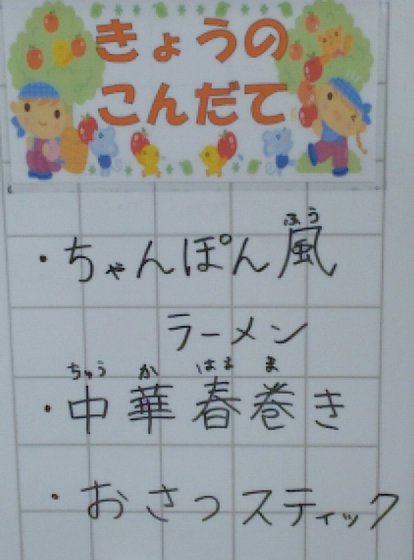 きょうの
こんだて
ふう
・ちゃんぽん風
ラーメン
ちゅう か はる ま
・中華春巻き
・おさつスティック